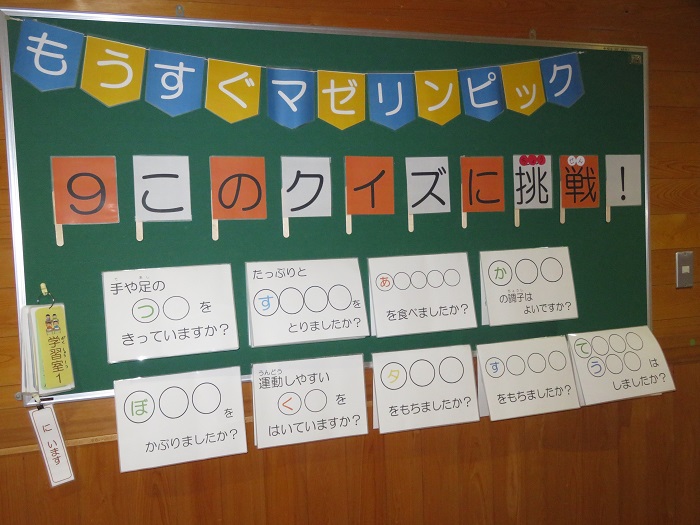 もうすぐマゼリンピック
9このクイズに挑戦!
ちょう せん
手や足の
て あし
つ○を
きっていますか?
たっぷりと
す○○○○を
とりましたか?
あ○○○○
を食べましたか?
か○○
の調子は
ちょうし
よいですか?
ぼ○○を
かぶりましたか?
運動しやすい
うんどう
く○を
はいていますか?
タ○○○
をもちましたか?
す○○○
をもちましたか?
て○○○
う○○は
しましたか?
学習室1
に います